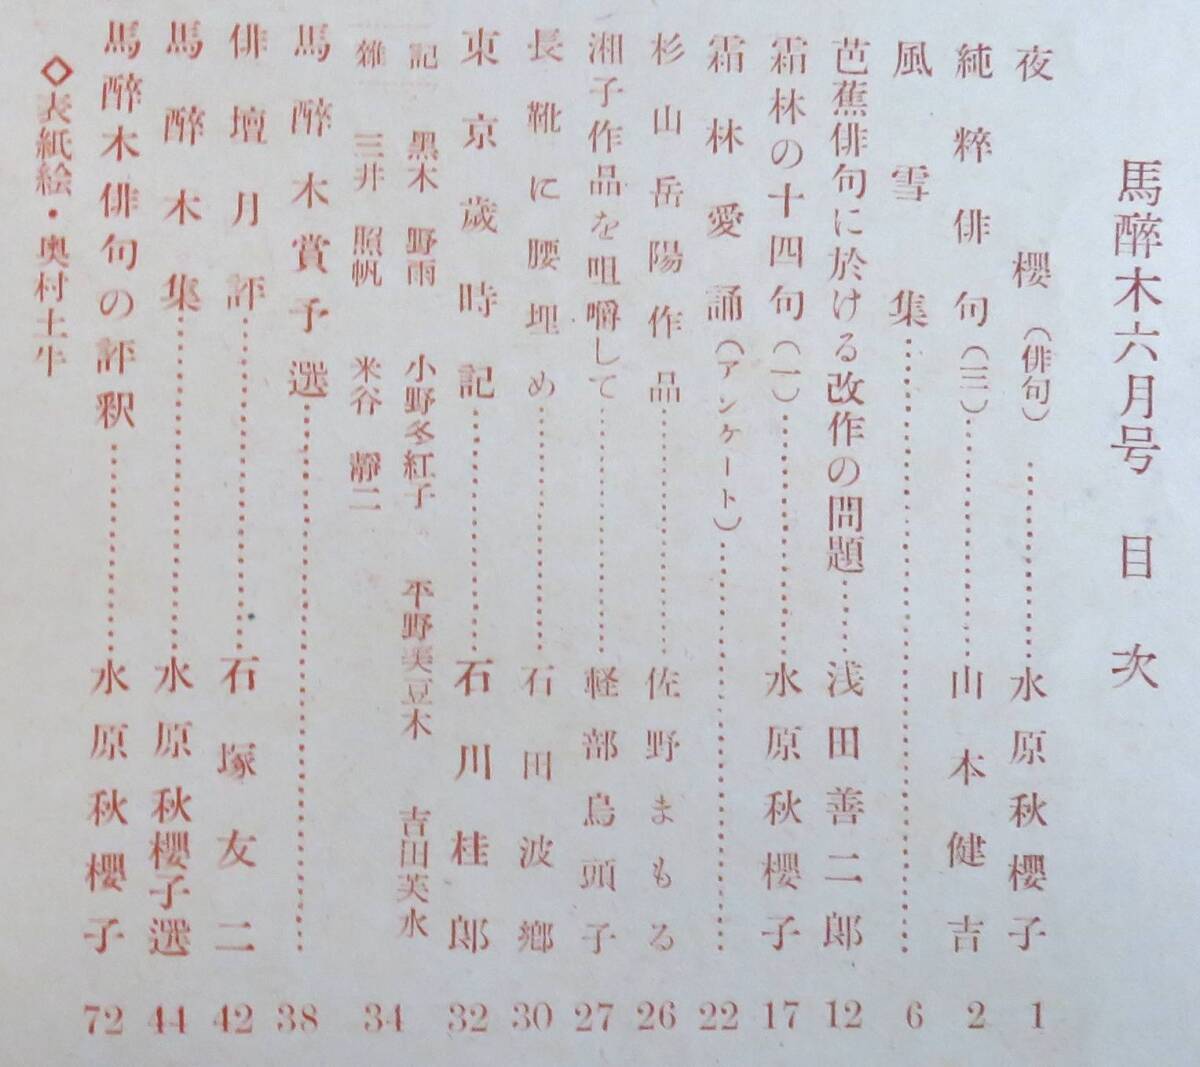 馬醉木六月号 目次
夜櫻（俳句）…………水原秋櫻子 1
純粹俳句（三）…………山本健吉 2
風雪集…………6
芭蕉俳句に於ける改作の問題……浅田善二郎 12
霜林の十四句（一）…………水原秋櫻子 17
霜林愛誦（アンケート）…………22
杉山岳陽作品…………佐野まもる 26
湘子作品を咀嚼して…………軽部烏頭子 27
長靴に腰埋め…………石田波郷 30
東京歳時記…………石川桂郎 32
雑記 34
黒木野雨 小野冬紅子 平野美豆木 吉田芙水
三井照帆 米谷靜二
馬醉木賞予選…………38
俳壇月評…………石塚友二 42
馬醉木集…………水原秋櫻子選 44
馬醉木俳句の評釈…………水原秋櫻子 72
◇表紙絵・奥村土牛